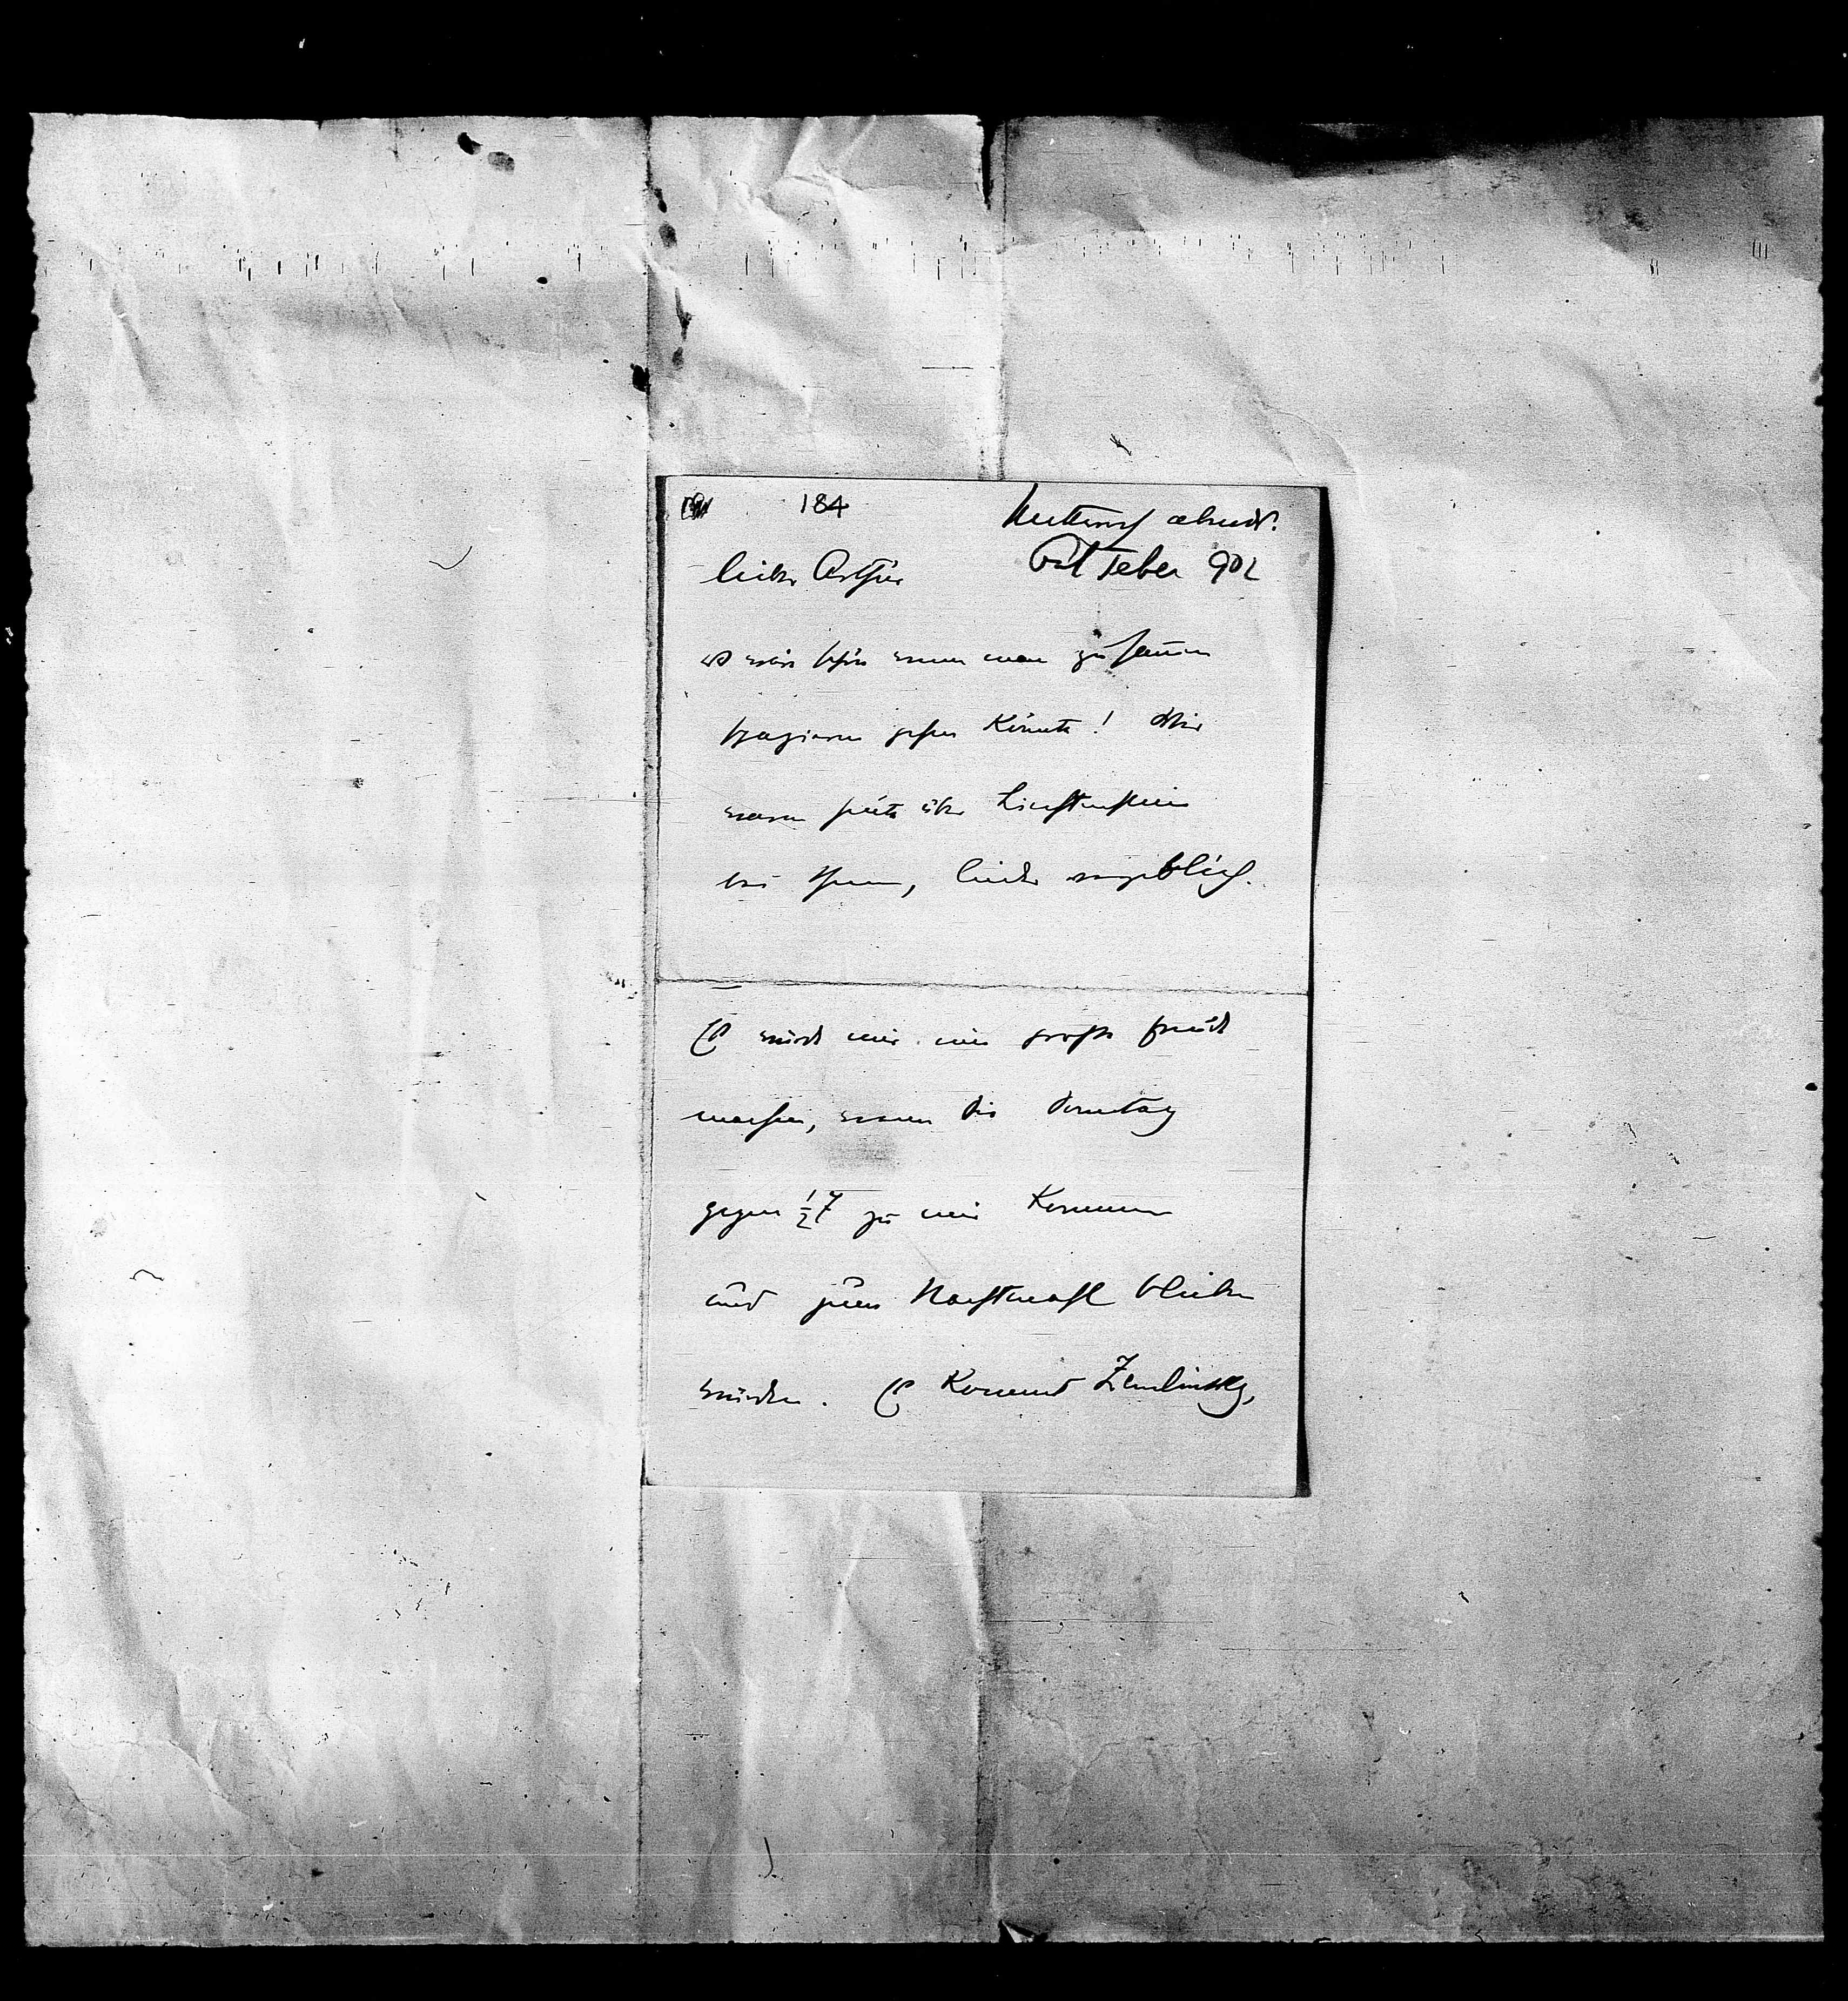 184
Mittwoch abends.
October 902
lieber Arthur
es wär schön wenn man zusammen
spazieren gehen könnte! Wir
waren heute über Liechtenstein
bei Ihnen, leider vergeblich.
Es würde mir eine große Freude
machen, wenn Sie Sonntag
gegen ½7 zu mir kommen
und zum Nachtmahl bleiben
würden. Es kommt Zemlinsky,